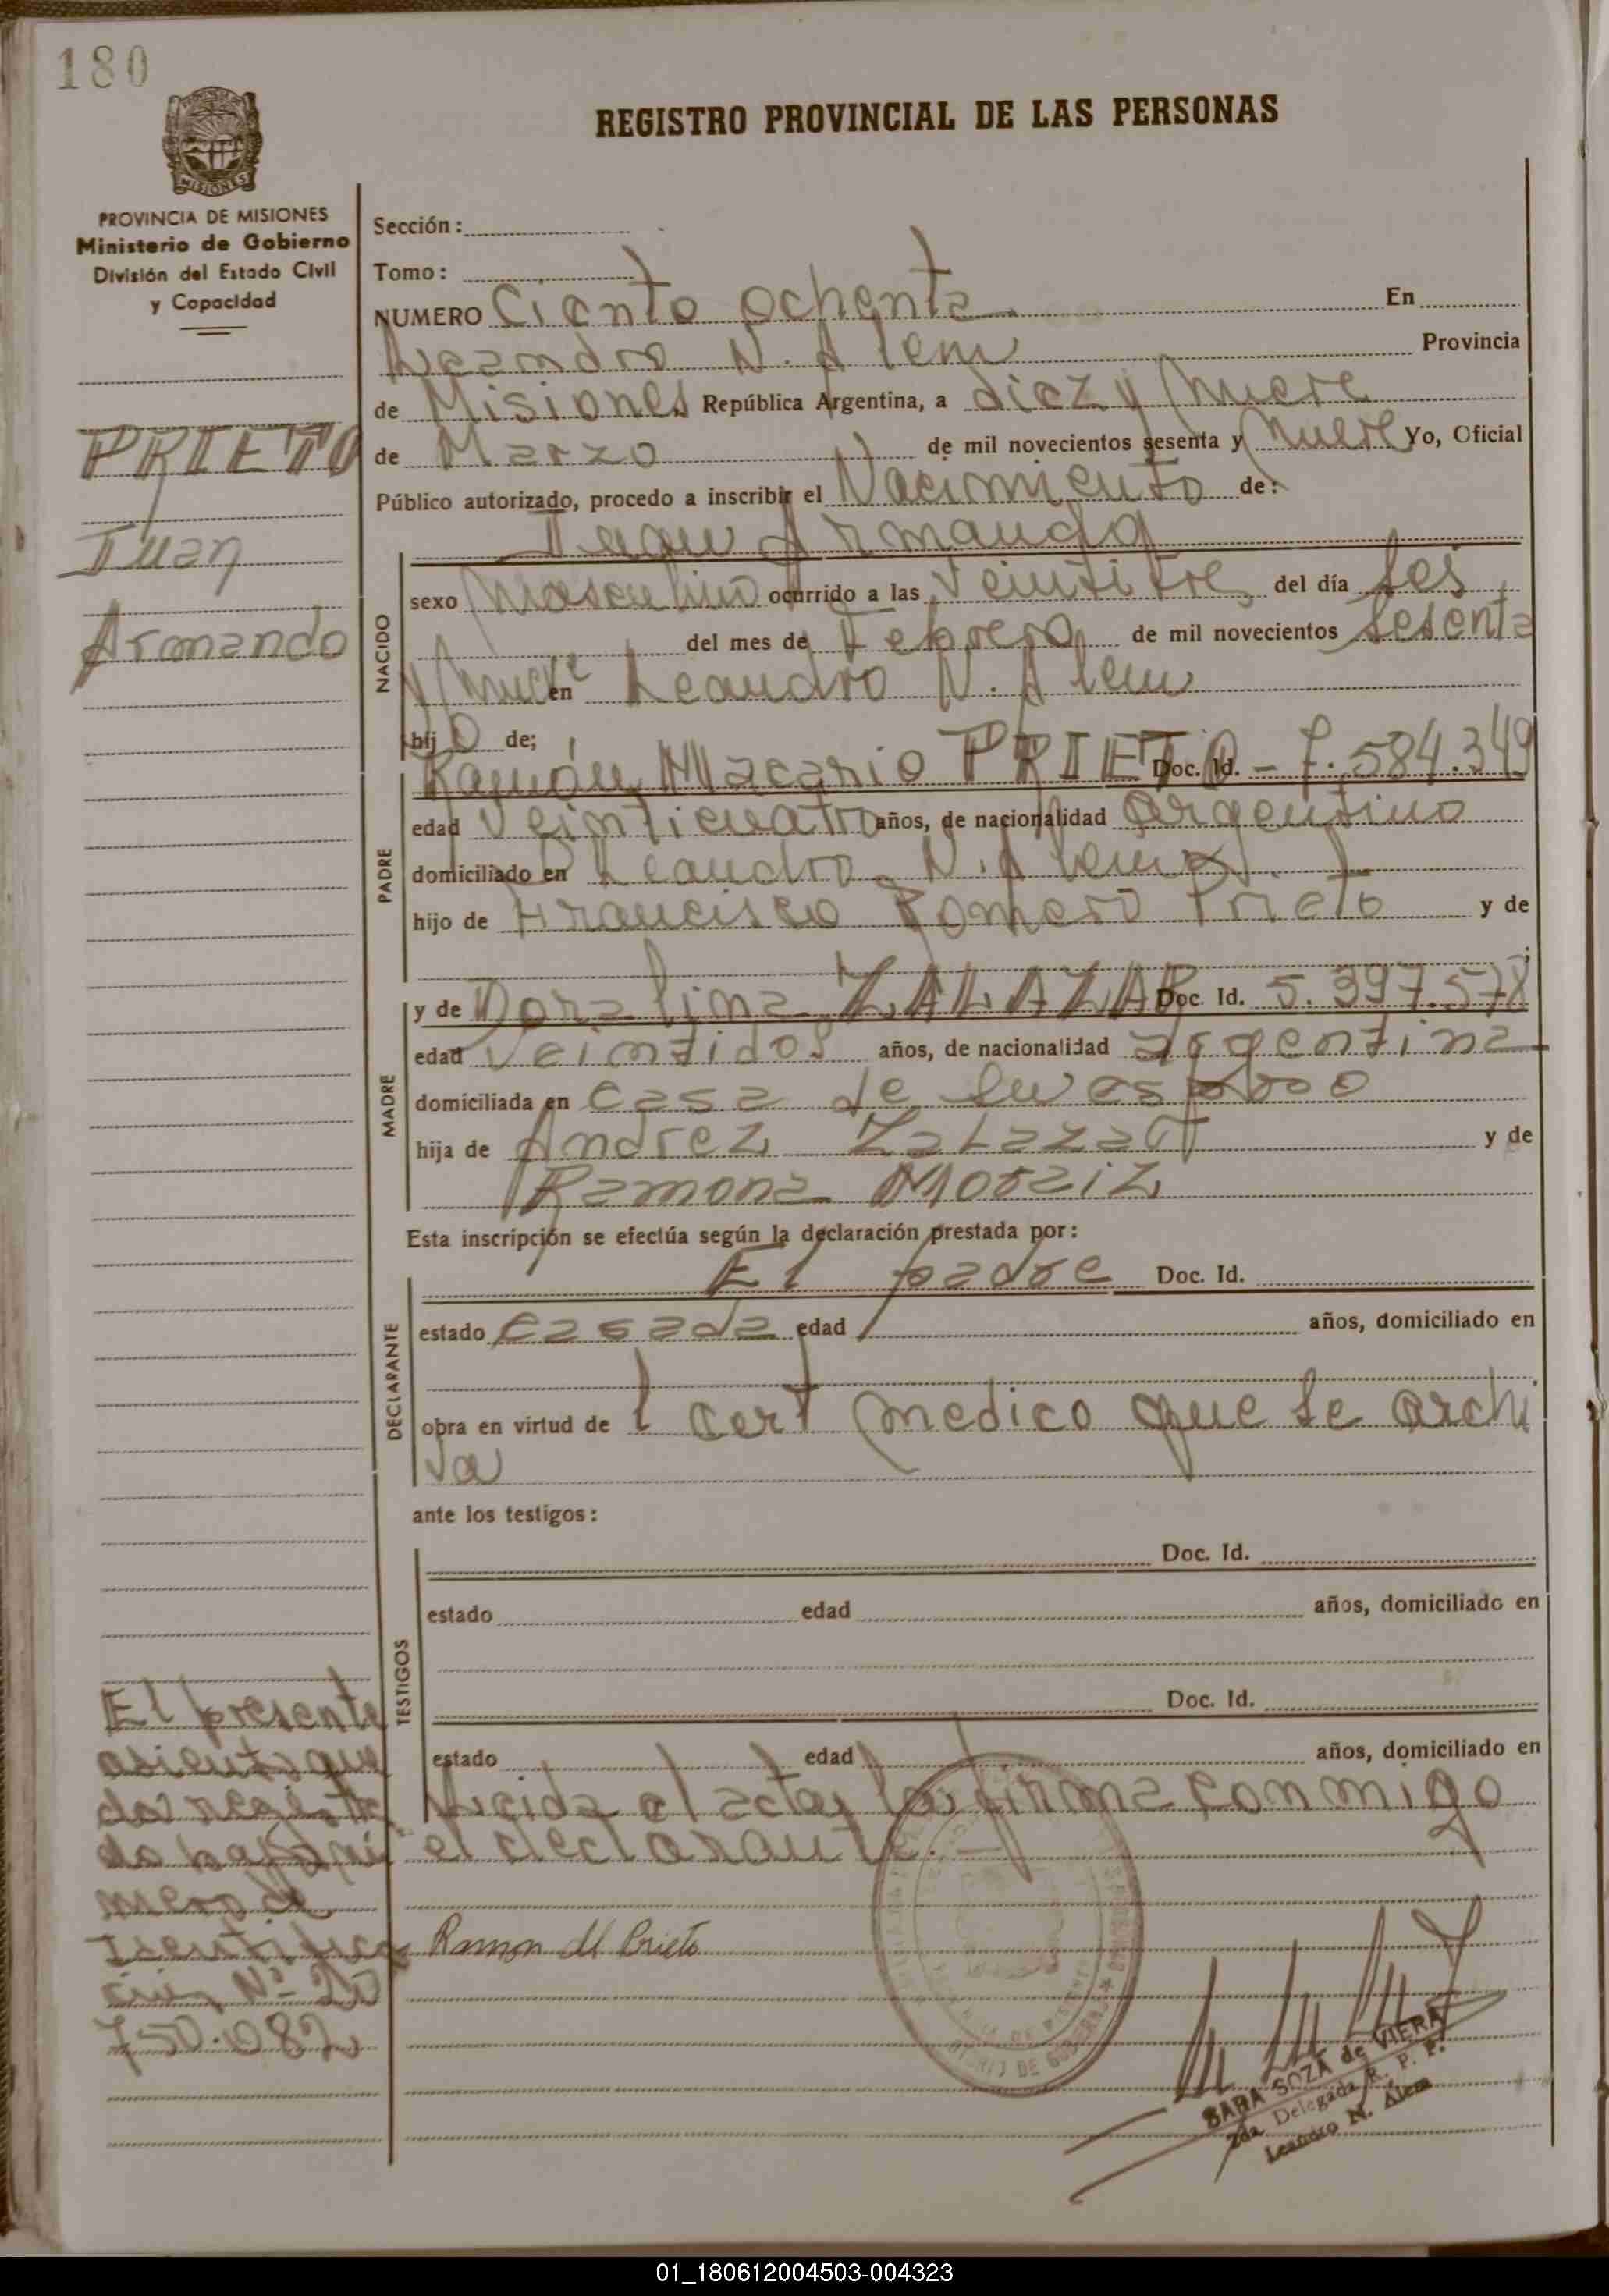 180
REGISTRO PROVINCIAL DE LAS PERSONAS
MISIONES
PROVINCIA DE MISIONES
Ministerio de Gobierno
División del Estado Civil
y Capacidad
PRIETO
Juan
Armando
Sección:
Tomo:
NUMERO Ciento Ochenta En
Leandro N. Alem Provincia
de Misiones República Argentina, a diez y nueve
de Marzo de mil novecientos sesenta y nueve Yo, Oficial
Público autorizado, procedo a inscribir el Nacimiento de:
Juan Armando
NACIDO
sexo Masculino ocurrido a las Veintitres del día seis
del mes de Febrero de mil novecientos sesenta
y nueve en Leandro N. Alem
hij o de;
PADRE
Ramón Macario PRIETO Doc. Id. - 7.584.349
edad Veinticuatro años, de nacionalidad argentino
domiciliado en Leandro N. Alem
hijo de Francisco Romero Prieto y de
MADRE
y de Doralina ZALAZAR Doc. Id. 5.397.578
edad Veintidos años, de nacionalidad argentina
domiciliada en casa de su esposo
hija de Andrez Zalazar y de
Ramona Moraiz
Esta inscripción se efectúa según la declaración prestada por:
DECLARANTE
El padre Doc. Id.
estado casada edad años, domiciliado en
obra en virtud de l cert medico que se archi
va
ante los testigos:
TESTIGOS
Doc. Id.
estado edad años, domiciliado en
Doc. Id.
estado edad años, domiciliado en
Leida el acta la firma conmigo
el declarante. -
Ramon M Prieto
El presente
asiento que
da registra
do bajo nú
mero de
N° 20
750.082
SARA SOZA de VIERA
2da Delegada R. P. P.
Leandro N. Alem
01_180612004503-004323